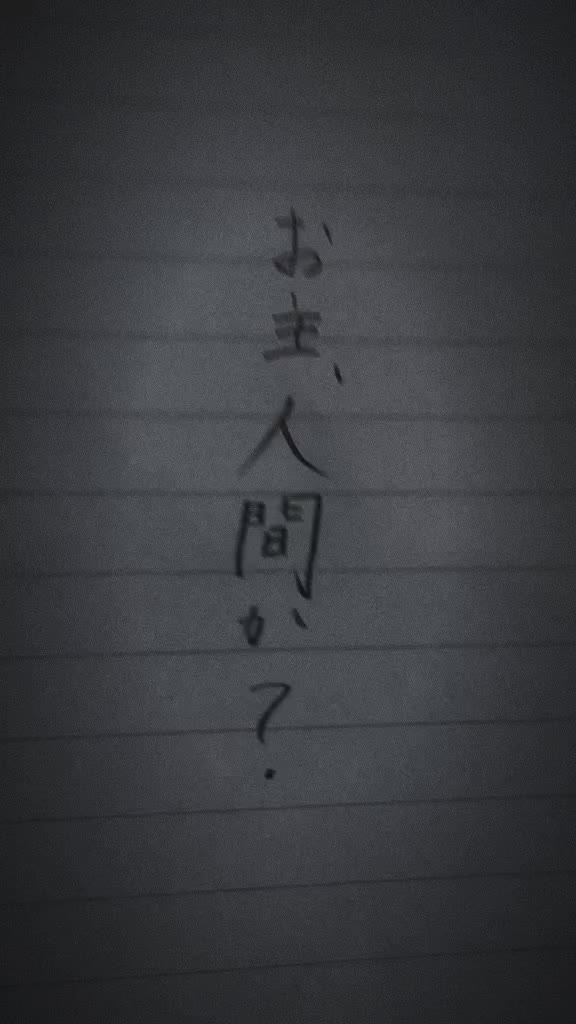 お主、人間か？